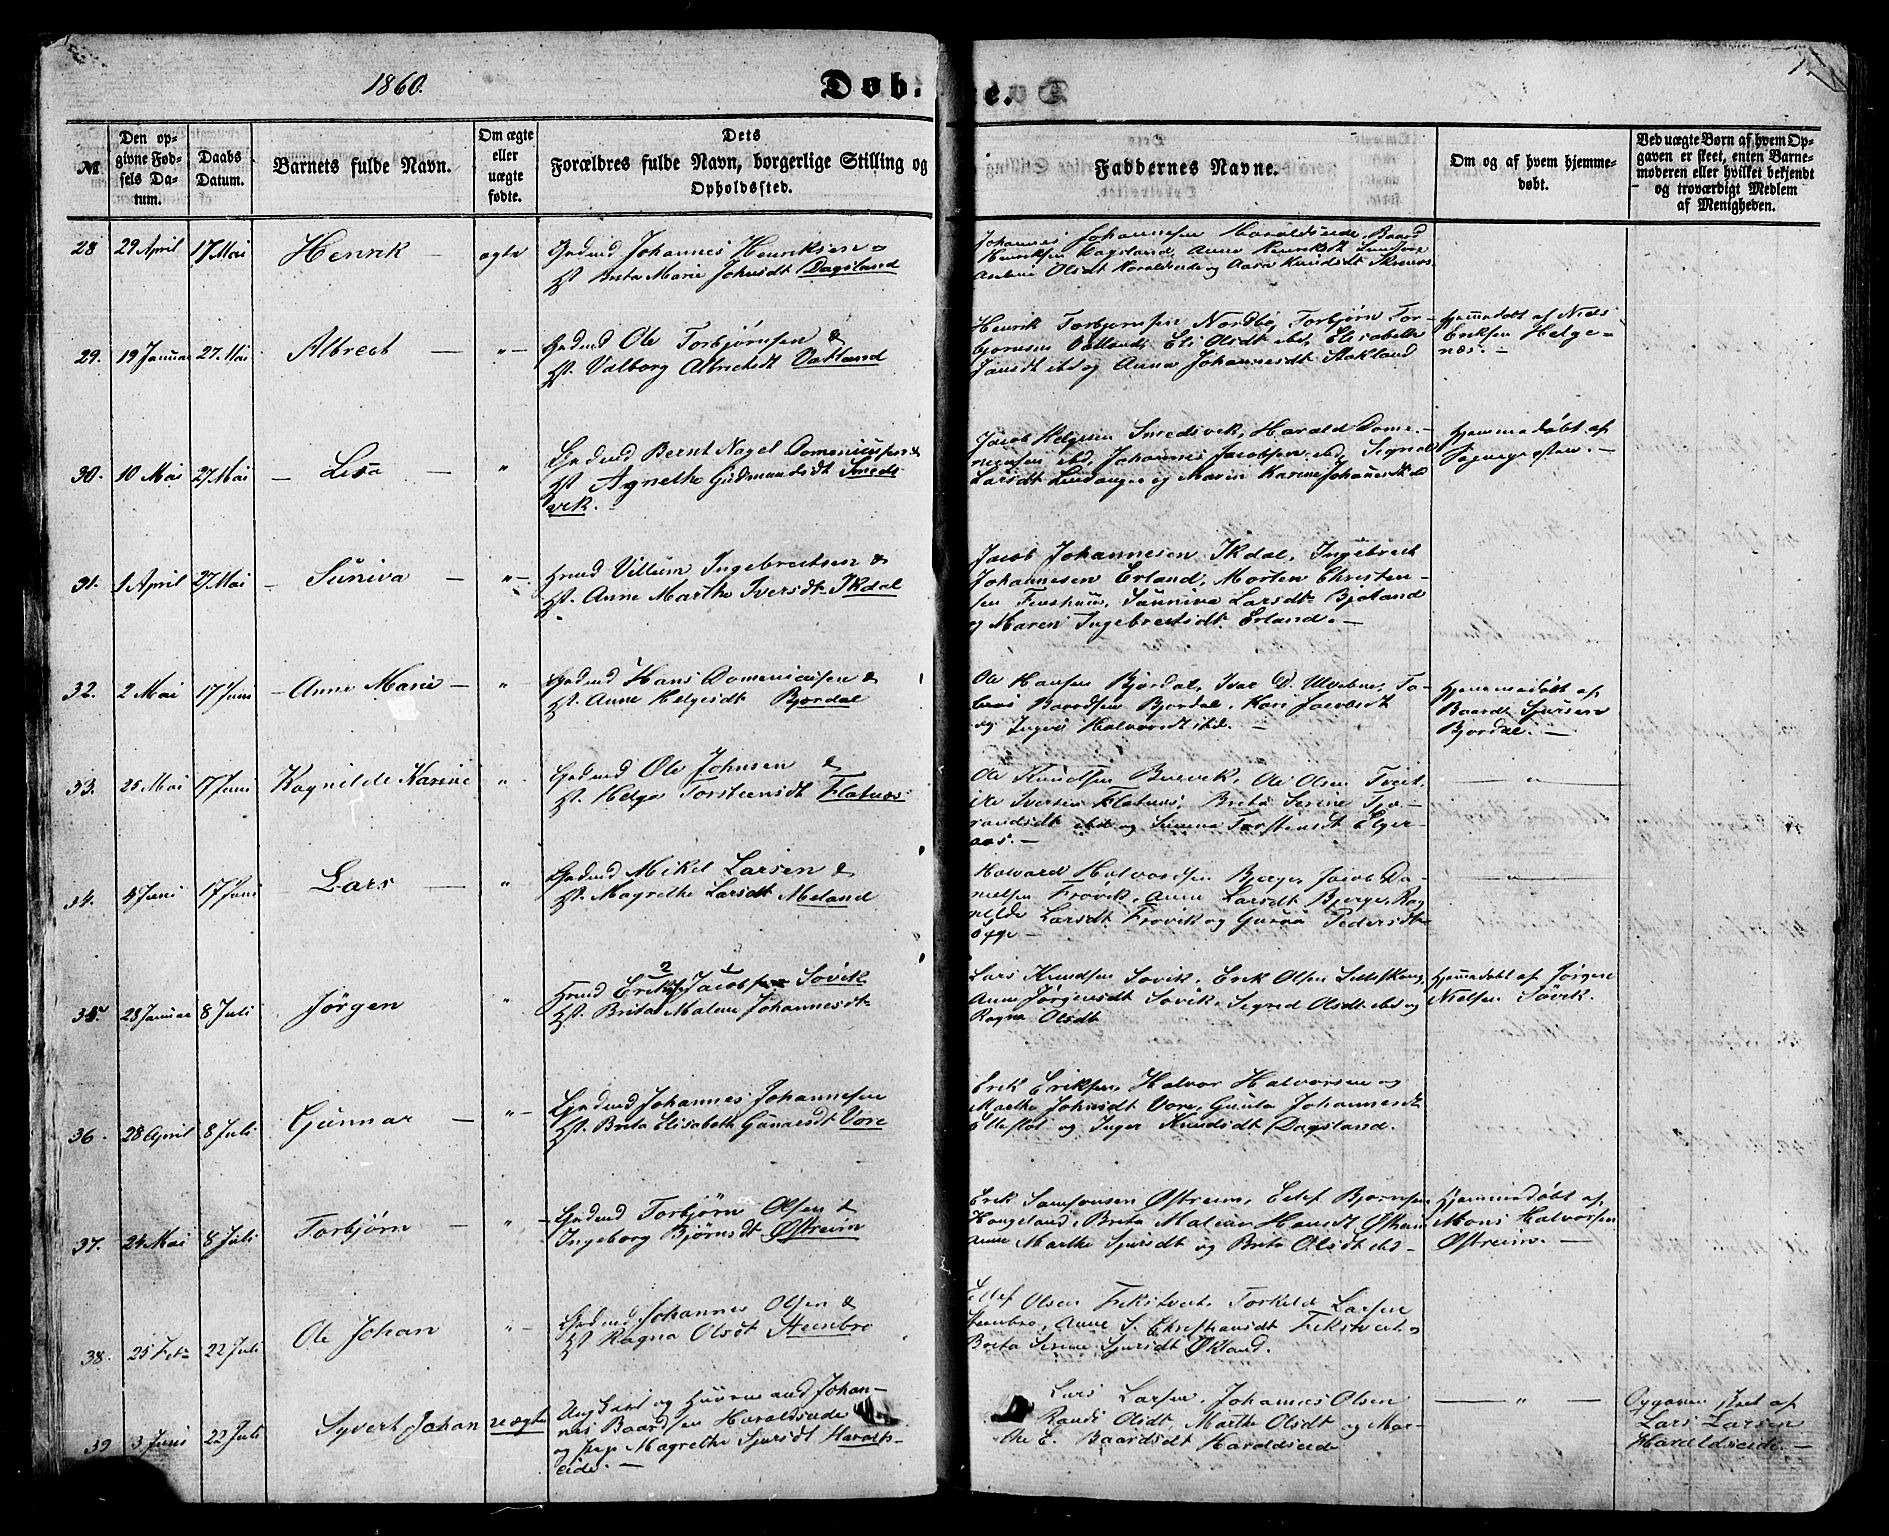 1860.
Døb-
e.
№
Den op-
givne Fød-
sels Da-
tum.
Daabs
Datum.
Barnets fulde Navn.
Om ægte
eller
uægte
fødte.
Dets
Forældres fulde Navn, borgerlige Stilling og
Opholdssted.
Faddernes Navne.
Om og af hvem hjemme-
døbt.
Ved uægte Børn af hvem Op-
gaven er skeet, enten Barne-
moderen eller hvilket bekjendt
og troværdigt Medlem
af Menigheden.
28 29 April 17 Mai Henrik — ægte
Gmd Johannes Henriksen &
H. Brita Marie Johnsdt Dagsland
Johannes Johannesen Haraldseide, Baard
Henriksen Dagsland, Anne Henriksdt
Olsdt Haraldseide og Aasa Knudsdt
29. 19 Januar 27 Mai Albrect — "—
Ole Torbjørnsen &
H. Valborg Albrictsdt Vatland
Henrik Torbjørnsen Nordbø, Torbjørn Tor-
bjørnsen Vatland, Eli Olsdt ibd, Elisabeth
Jansdt ibd og Anna Johannesdt Stakland
Hjemmedøbt af Niels
Eriksen Helge-
næs. —
30. 10 Mai 27 Mai — Lisa — "
Bernt Nagel Domenicussen &
H. Agnethe Gudmundsdt Smeds-
vik.
Jacob Helgesen Smedsvik, Harald Dome-
nicusen ibd, Johannes Jacobsen ibd,
Larsdt og Maren Karine Johannesdt
Hjemmedøbt af
Sognepresten. —
31. 1 April 27 Mai — Suniva — "—
Villum Ingebrectsen &
H. Anne Marthe Iversdt Ikdal
Jacob Johannesen Ikdal, Ingebrect
Johannesen Erland, Morten Christen-
sen, Sunniva Larsdt
og Maren Ingebrectsdt Erland. —
32. 2 Mai 17 Juni — Anne Marie — "
Hans Domenicusen &
H. Anne Helgesdt Bjordal
Ole Hansen Bjordal, Ivar D. Ulvebne, To-
bias Baardsen Bjordal, Kari Jacobsdt
og Inger Halvorsdt ibd. —
Hjemmedøbt af
Baardt Sjursen
Bjordal. —
33. 25 Mai 17 Juni Ragnilde Karine "
Ole Johnsen &
H. Helga Torstensdt Flatnæs
Ole Knudsen, Ole Olsen Tveit,
Ole Iversen Flatnæs, Brita Serine Tjo-
randsdt ibd og Torstensdt Elger-
aas. —
— " —
34. 4 Juni 17 Juni Lars — "
Mikel Larsen &
H. Magrethe Larsdt Meland
Halvard Halvordsen Bjerge, Jacob Da-
nielsen Frøvik, Anne Larsdt Bjerge, Rag-
nilde Larsdt Frøvik og Guroa Pedersdt
— " —
35 28 Januar 8 Juli Jørgen "
2 1
Erik Jacobsen Søvik
H. Brita Malene Johannesdt
Lars Knudsen Søvik, Erik Olsen
Anne Jørgensdt Søvik, Segred Olsdt ibd og
Ragna Olsdt
Hjemmedøbt af Jørgen
Nielsen Søvik.
36. 28 April 8 Juli Gunnar — "—
Johannes Johannesen
H. Brita Elisabeth Gunarsdt Vore
Erik Eriksen, Halvor Halvorsen og
Martha Johnsdt Vore, Johannesdt
og Inger Knudsdt Dagsland.
37. 24 Mai 8 Juli Torbjørn — "—
Torbjørn Olsen &
Ingeborg Bjørnsdt Østreim
Erik Samsonsen Østreim, Edlef Bjørnsen
Haugeland, Brita Malene Hansdt
Anne Marthe Sjursdt og Brita Olsdt ibd —
Hjemmedøbt af
Mons Halvorsen
Østreim. —
38. 25 Feb 22 Juli Ole Johan "—
Johannes Olsen &
H. Ragna Olsdt Steenbro
Edlef Olsen Fikstveit, Torkild Larsen
Steenbro, Anne S. Christiansdt Fikstveit og
Brita Serine Sjursdt Økland.
39 3 Juni 22 Juli Syvert Johan uægte
Ungkarl og Johan-
nes Baardsen Haraldseide
og Pige Magrethe Sjursdt Haralds-
eide. —
Lars Larsen, Johannes Olsen
Randi Olsdt, Marthe Olsdt og Mar-
the E. Baardsdt Haraldseide
— " —
Opgaven skeet af
Lars Larsen
Haraldseide. —